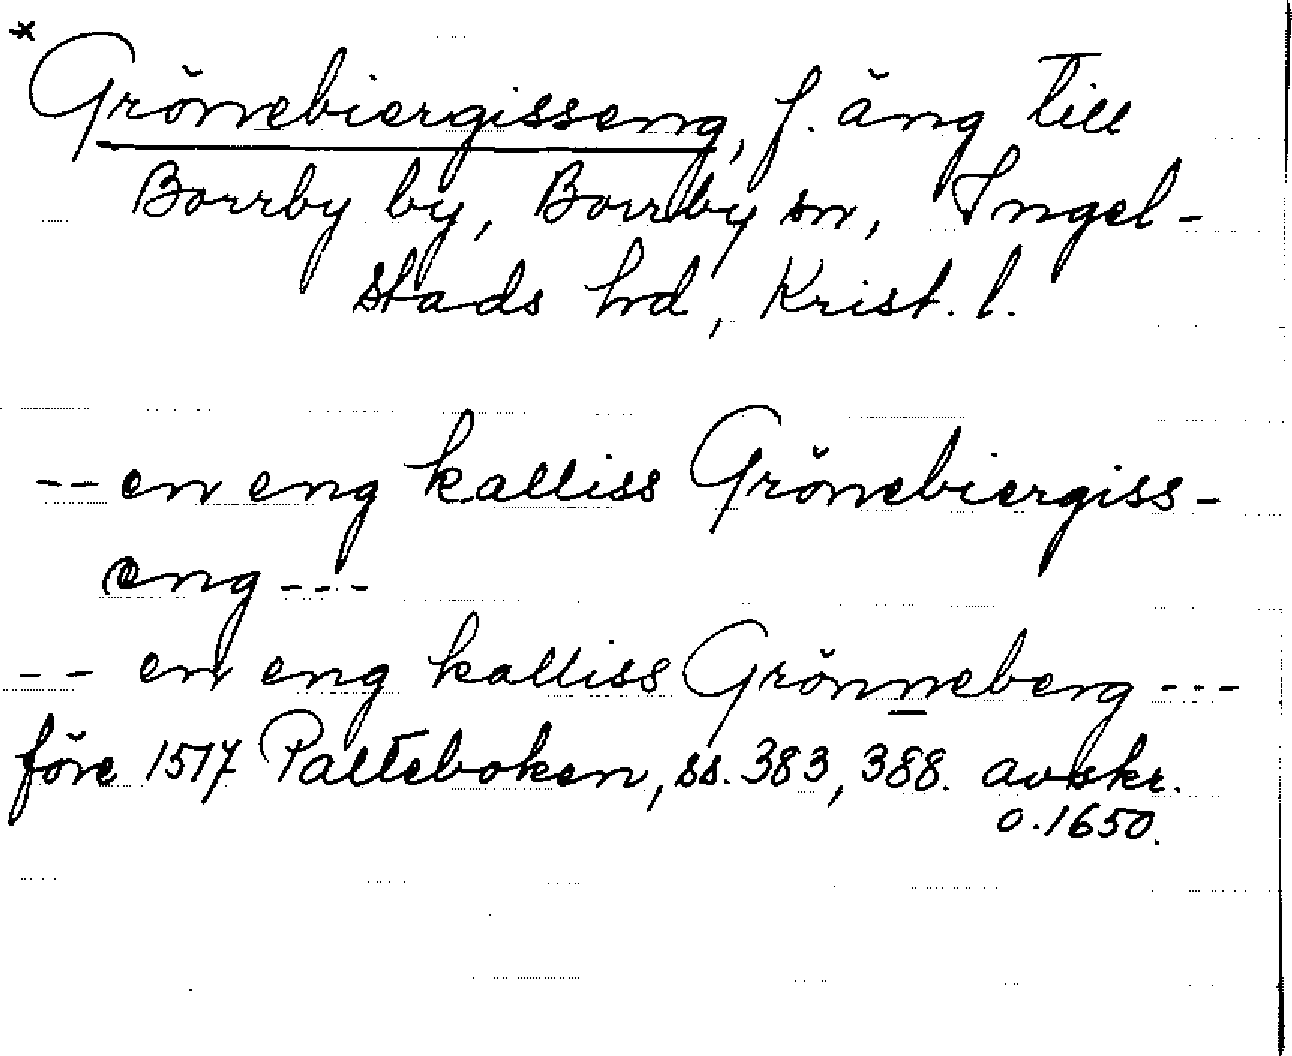 * Grönebiergisseng, f. äng till
Borrby by, Borrby sn, Ingel-
stads hd, Krist. l.
-- en eng kalliss Grönebiergiss-
eng ---
-- en eng kalliss Grönneberg ---
före 1517 Palteboken, ss. 383, 388. avskr.
o. 1650.